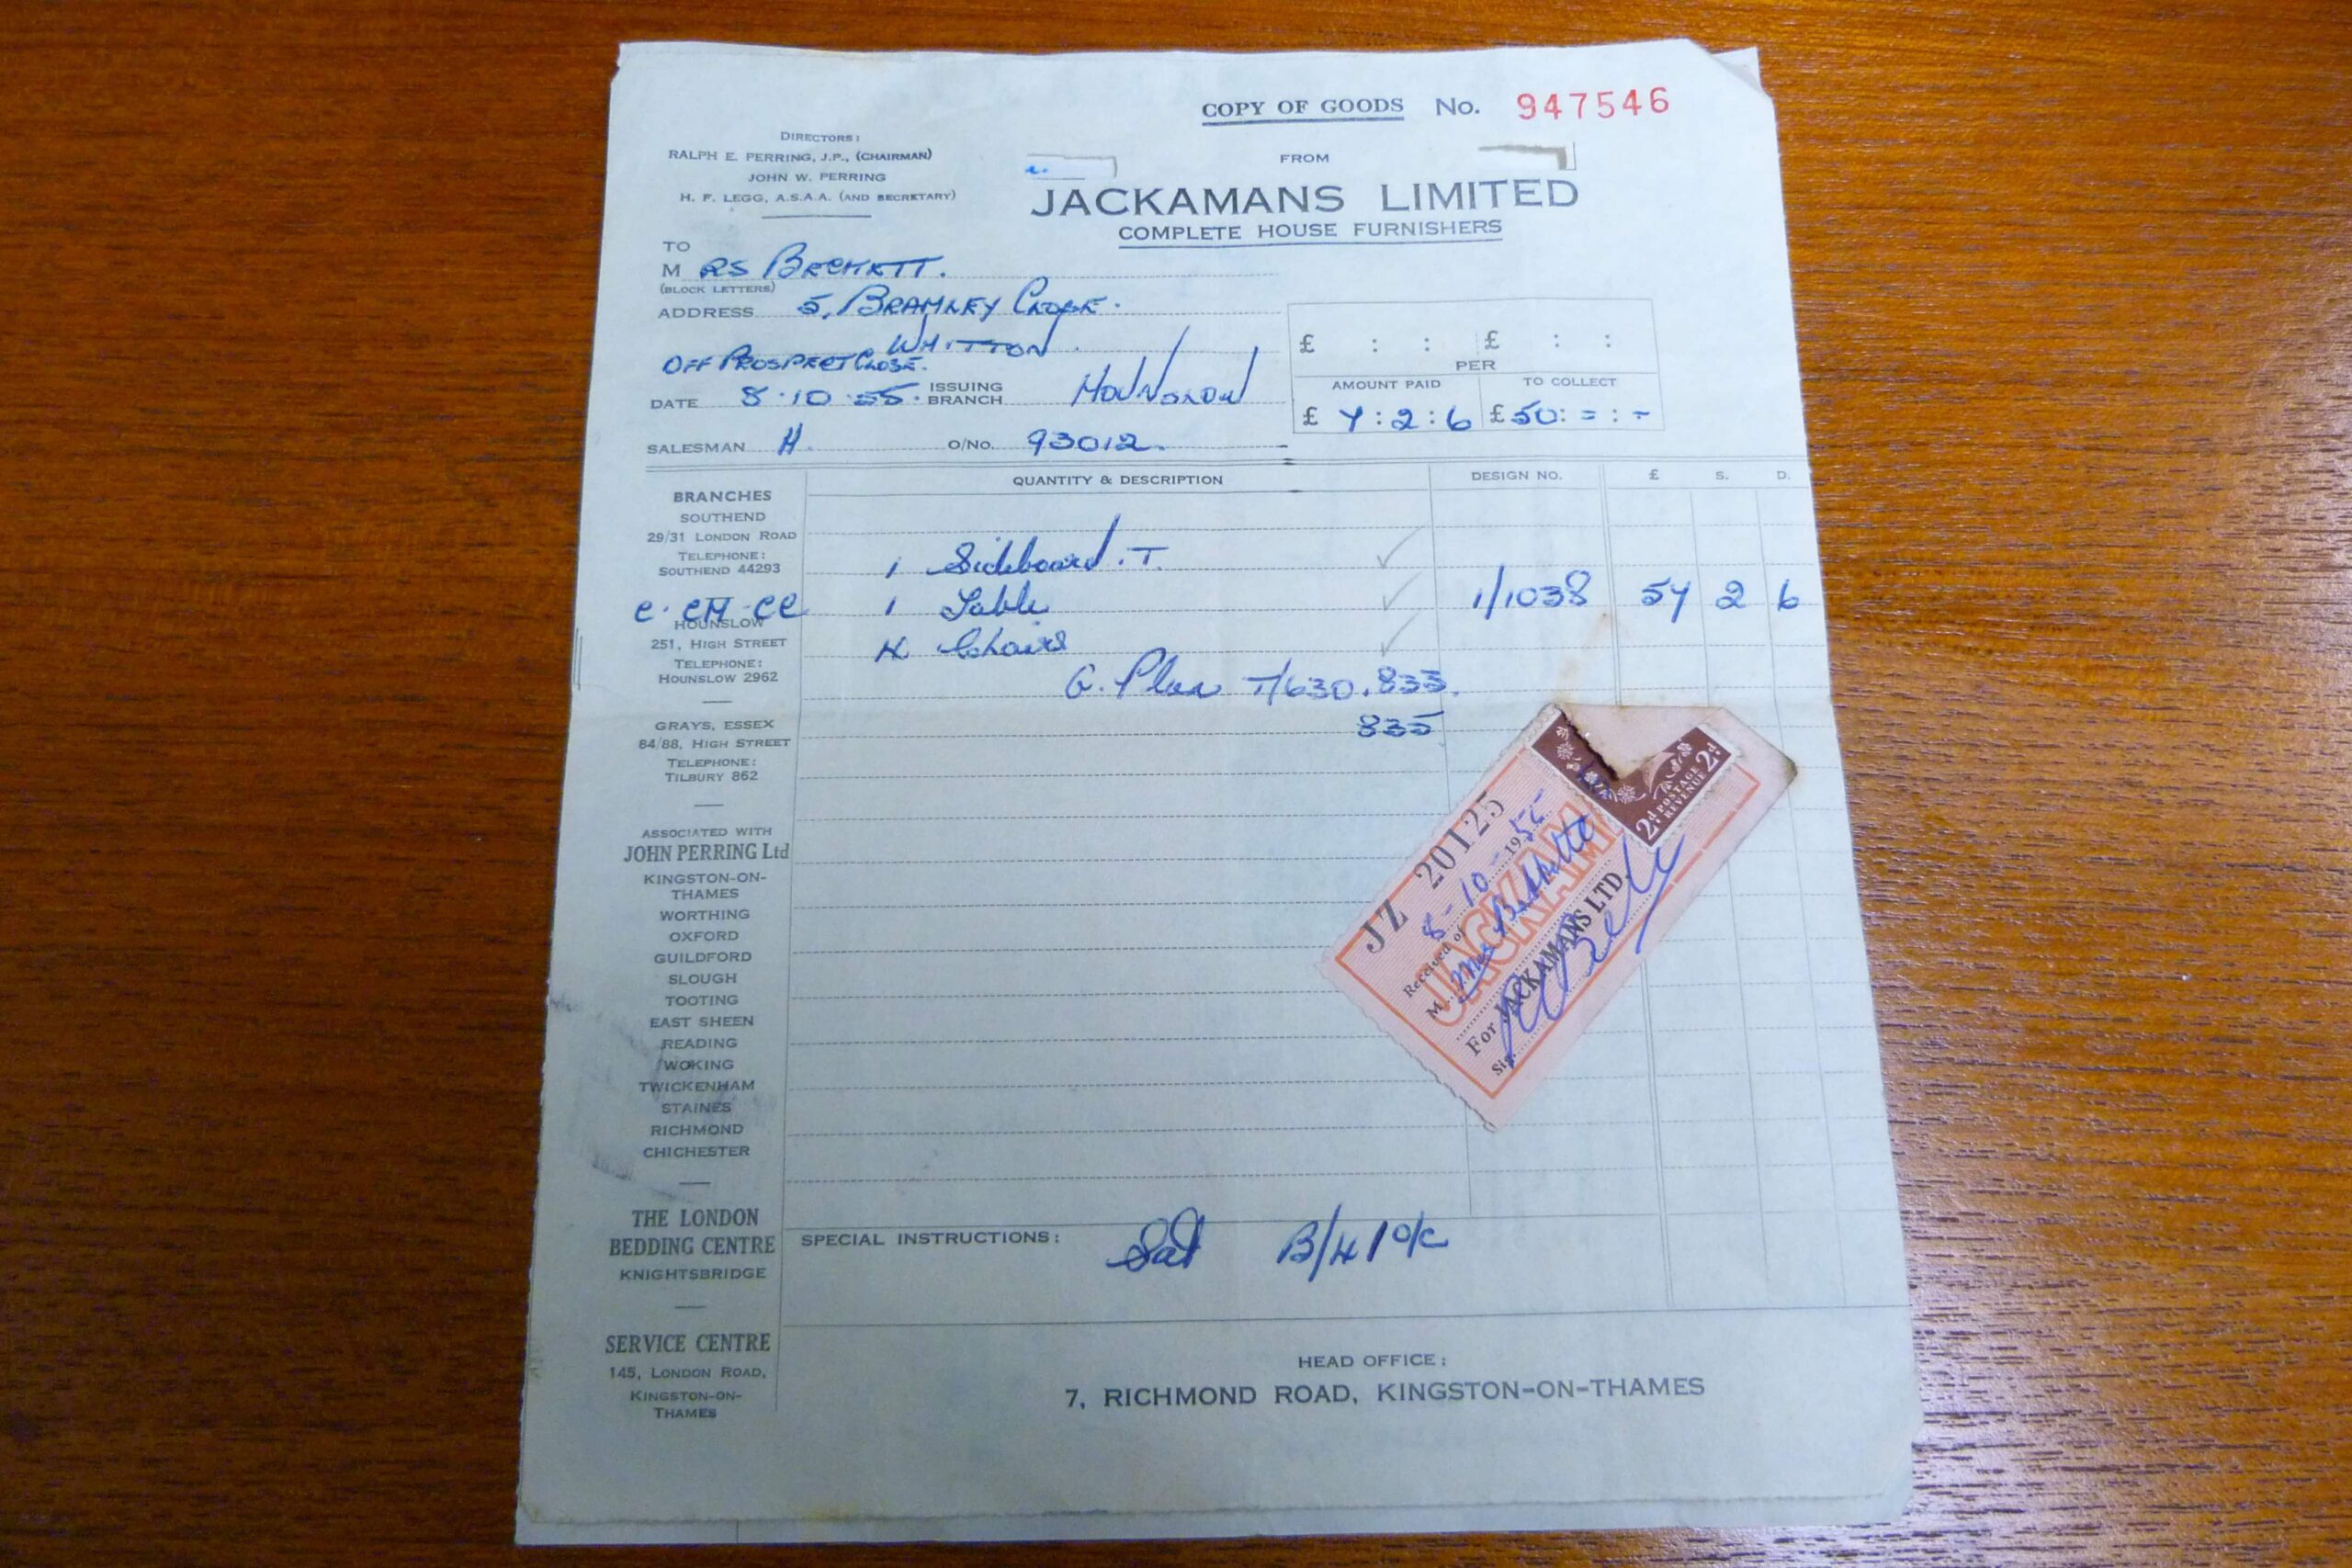 COPY OF GOODS No. 947546
DIRECTORS:
RALPH E. PERRING, J.P., (CHAIRMAN)
JOHN W. PERRING
H. F. LEGG, A.S.A.A. (AND SECRETARY)
FROM
JACKAMANS LIMITED
COMPLETE HOUSE FURNISHERS
TO
M RS BECKETT.
(BLOCK LETTERS)
ADDRESS 5, BRAMLEY CLOSE.
WHITTON.
OFF PROSPECT CLOSE.
DATE 8.10.55. ISSUING BRANCH HOUNSLOW
SALESMAN H. O/No. 93012.
£ : : £ : :
PER
AMOUNT PAID TO COLLECT
£ 4:2:6 £ 50:=:-
QUANTITY & DESCRIPTION DESIGN NO. £ S. D.
1 Sideboard. T.
1 Table 1/1038 54 2 6
4 Chairs
G. Plan T/630.833.
835
BRANCHES
SOUTHEND
29/31 LONDON ROAD
TELEPHONE:
SOUTHEND 44293
C. CH. CC
HOUNSLOW
251, HIGH STREET
TELEPHONE:
HOUNSLOW 2962
GRAYS, ESSEX
84/88, HIGH STREET
TELEPHONE:
TILBURY 862
ASSOCIATED WITH
JOHN PERRING Ltd
KINGSTON-ON-
THAMES
WORTHING
OXFORD
GUILDFORD
SLOUGH
TOOTING
EAST SHEEN
READING
WOKING
TWICKENHAM
STAINES
RICHMOND
CHICHESTER
THE LONDON
BEDDING CENTRE
KNIGHTSBRIDGE
SERVICE CENTRE
145, LONDON ROAD,
KINGSTON-ON-
THAMES
JZ 20125
8-10-1955
Received of
M Mrs
For JACKAMANS LTD.
Sig.
JACKAMAN
2d POSTAGE REVENUE 2d
SPECIAL INSTRUCTIONS: Sat B/4 1 o/c
HEAD OFFICE:
7, RICHMOND ROAD, KINGSTON-ON-THAMES